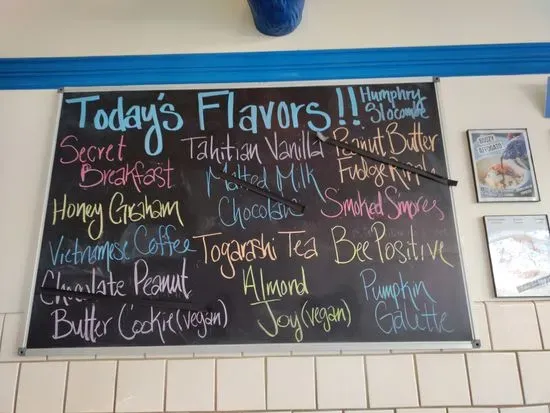 Today's Flavors!!
Humphry
Slocombe
Secret
Breakfast
Honey Graham
Vietnamese Coffee
Chocolate Peanut
Butter Cookie (vegan)
Tahitian Vanilla
Malted Milk
Chocolate
Togarashi Tea
Almond
Joy (vegan)
Peanut Butter
Fudge Ripple
Smoked Smores
Bee Positive
Pumpkin
Galette
BOOZY
AFFOGATO